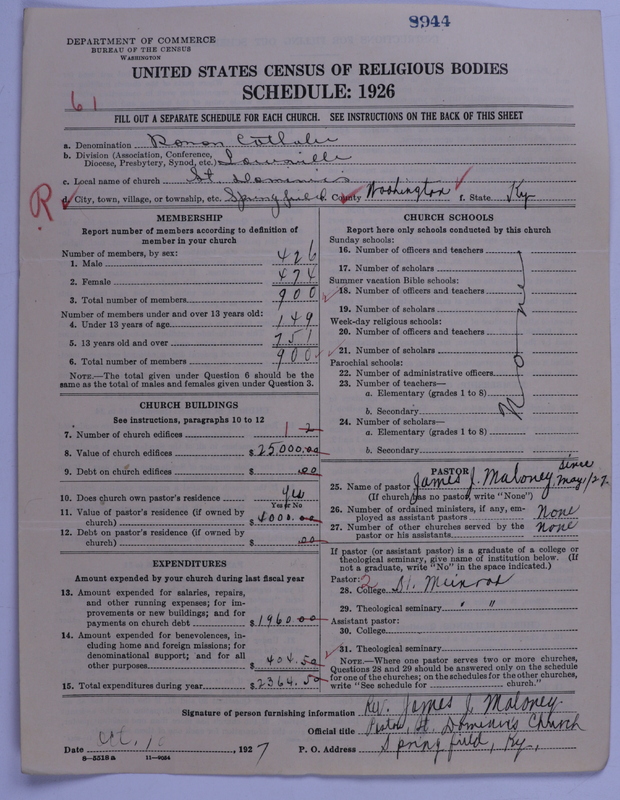 8944
DEPARTMENT OF COMMERCE
BUREAU OF THE CENSUS
WASHINGTON
UNITED STATES CENSUS OF RELIGIOUS BODIES
SCHEDULE: 1926
61
FILL OUT A SEPARATE SCHEDULE FOR EACH CHURCH. SEE INSTRUCTIONS ON THE BACK OF THIS SHEET
a. Denomination Roman Catholic
b. Division (Association, Conference, Diocese, Presbytery, Synod, etc.) Louisville
c. Local name of church St. Dominic's
R
d. City, town, village, or township, etc. Springfield e. County Washington f. State Ky
MEMBERSHIP
Report number of members according to definition of member in your church
Number of members, by sex:
1. Male 426
2. Female 474
3. Total number of members 900
Number of members under and over 13 years old:
4. Under 13 years of age 149
5. 13 years old and over 751
6. Total number of members 900
NOTE.—The total given under Question 6 should be the same as the total of males and females given under Question 3.
CHURCH BUILDINGS
See instructions, paragraphs 10 to 12
7. Number of church edifices 1 2
8. Value of church edifices $25000.00
9. Debt on church edifices $ .00
10. Does church own pastor's residence Yes
Yes or No
11. Value of pastor's residence (if owned by church) $4000.00
12. Debt on pastor's residence (if owned by church) $ .00
EXPENDITURES
Amount expended by your church during last fiscal year
13. Amount expended for salaries, repairs, and other running expenses; for improvements or new buildings; and for payments on church debt $1960 00
14. Amount expended for benevolences, including home and foreign missions; for denominational support; and for all other purposes $404.50
15. Total expenditures during year $2364.50
CHURCH SCHOOLS
Report here only schools conducted by this church
Sunday schools:
16. Number of officers and teachers
17. Number of scholars
Summer vacation Bible schools:
18. Number of officers and teachers
19. Number of scholars
Week-day religious schools:
20. Number of officers and teachers
21. Number of scholars
Parochial schools:
22. Number of administrative officers
23. Number of teachers—
a. Elementary (grades 1 to 8)
b. Secondary
24. Number of scholars—
a. Elementary (grades 1 to 8)
b. Secondary
None
PASTOR
25. Name of pastor James J. Maloney since May 1/27
(If church has no pastor, write "None")
26. Number of ordained ministers, if any, employed as assistant pastors None
27. Number of other churches served by the pastor or his assistants None
If pastor (or assistant pastor) is a graduate of a college or theological seminary, give name of institution below. (If not a graduate, write "No" in the space indicated.)
Pastor: 2
28. College St. Meinrad
29. Theological seminary " "
Assistant pastor:
30. College
31. Theological seminary
NOTE.—Where one pastor serves two or more churches, Questions 28 and 29 should be answered only on the schedule for one of the churches; on the schedules for the other churches, write "See schedule for church."
Signature of person furnishing information Rev. James J. Maloney
Official title Pastor, St. Dominic's Church
Date , 1927 P. O. Address Springfield, Ky.
8—5518a 11—9054